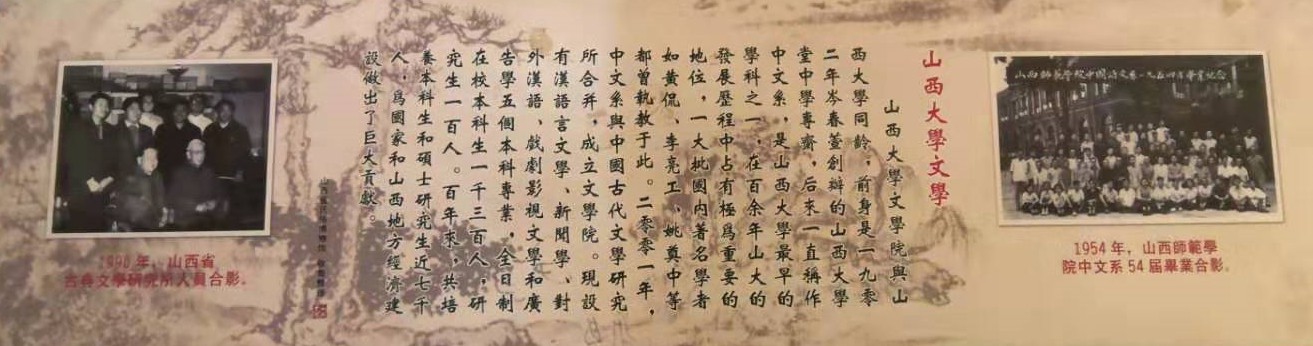 山西師範學院中國語文系一九五四畢業紀念
1954年，山西師範學
院中文系54届畢業合影。
山西大學文學
山西大學文學院與山
西大學同齡，前身是一九零
二年岑春萱創辦的山西大學
堂中學專齋，后來一直稱作
中文系，是山西大學最早的
學科之一，在百余年山大的
發展歷程中占有極爲重要的
地位，一大批國内著名學者
如黄侃、李亮工、姚奠中等
都曾執教于此。二零零一年，
中文系與中國古代文學研究
所合并，成立文學院。現設
有漢語言文學、新聞學、對
外漢語、戲劇影視文學和廣
告學五個本科專業，全日制
在校本科生一千三百人，研
究生一百人。百年來，共培
養本科生和碩士研究生近七千
人，爲國家和山西地方經濟建
設做出了巨大貢獻。
山西省
古典文學研究所人員合影。